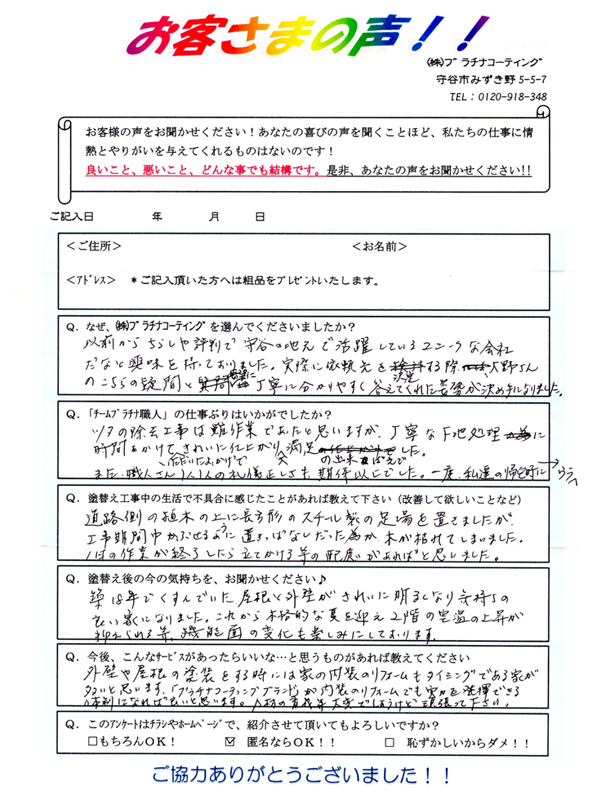 お客さまの声！！
(株)プラチナコーティング
守谷市みずき野 5-5-7
TEL：0120-918-348
お客様の声をお聞かせください！あなたの喜びの声を聞くことほど、私たちの仕事に情
熱とやりがいを与えてくれるものはないのです！
良いこと、悪いこと、どんな事でも結構です。是非、あなたの声をお聞かせください!!
ご記入日　年　月　日
＜ご住所＞　＜お名前＞
＜アドレス＞　＊ご記入頂いた方へは粗品をプレゼントいたします。
Q．なぜ、(株)プラチナコーティングを選んでくださいましたか？
以前からちらしや評判で守谷の地元で活躍しているユニークな会社
だなと興味を持っておりました。実際に依頼先を決定する際、大野さん
のこちらの疑問と質問に丁寧に分かりやすく答えてくれた姿勢が決め手になりました。
Q．「チームプラチナ職人」の仕事ぶりはいかがでしたか？
ツタの除去工事は難作業であったと思いますが、丁寧な下地処理に
時間をかけてきれいに仕上がり大満足の出来ばえでした。
また、職人さん1人1人の礼儀正しさも期待以上でした。一度、私達の帰宅時に
Q．塗替え工事中の生活で不具合に感じたことがあれば教えて下さい（改善して欲しいことなど）
道路側の植木の上に長方形のスチール製の足場を置てましたが、
工事期間中かぶせるように置きっぱなしだった為か木が枯れてしまいました。
1日の作業が終了したら立てかける等の配慮があればと思いました。
Q．塗替え後の今の気持ちを、お聞かせください♪
築18年でくすんでいた屋根と外壁がきれいに明るくなり気持ちの
良い家になりました。これから本格的な夏を迎え2階の室温の上昇が
抑えられる等、機能面の変化も楽しみにしております。
Q．今後、こんなサービスがあったらいいな…と思うものがあれば教えてください
外壁や屋根の塗装をする時には家の内装のリフォームもタイミングである家が
多いと思います。「プラチナコーティングブランド」が内装のリフォームでも実力を発揮できる
体制になれば良いと思います。人材の育成等大変でしょうけど頑張って下さい。
Q．このアンケートはチラシやホームページで、紹介させて頂いてもよろしいですか？
□もちろんOK！　☑ 匿名ならOK！！　□ 恥ずかしいからダメ！！
ご協力ありがとうございました！！